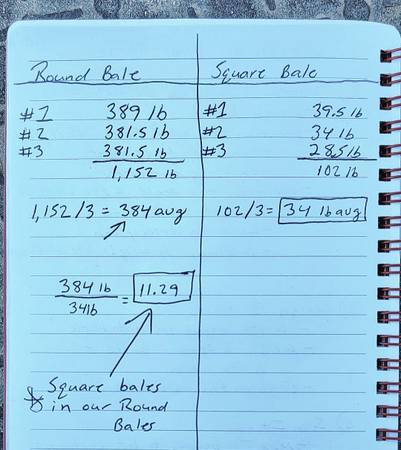 Round Bale
#1 389 lb
#2 381.5 lb
#3 381.5 lb
1,152 lb
1,152/3 = 384 avg
384 lb
34lb
= 11.29
Square bales
in our Round
Bales
Square Bale
#1 39.5 lb
#2 34 lb
#3 28.5 lb
102 lb
102/3 = 34 lb avg